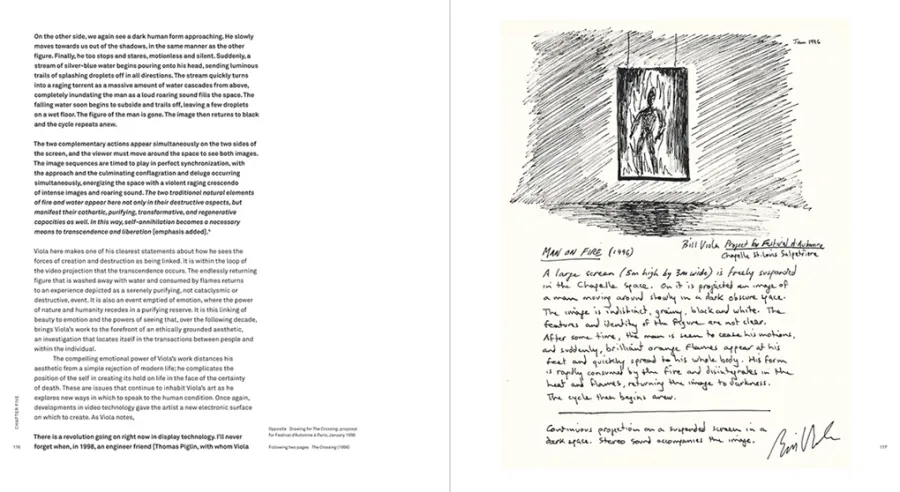 On the other side, we again see a dark human form approaching. He slowly
moves towards us out of the shadows, in the same manner as the other
figure. Finally, he too stops and stares, motionless and silent. Suddenly, a
stream of silver-blue water begins pouring onto his head, sending luminous
trails of splashing droplets off in all directions. The stream quickly turns
into a raging torrent as a massive amount of water cascades from above,
completely inundating the man as a loud roaring sound fills the space. The
falling water soon begins to subside and trails off, leaving a few droplets
on a wet floor. The figure of the man is gone. The image then returns to black
and the cycle repeats anew.
The two complementary actions appear simultaneously on the two sides of
the screen, and the viewer must move around the space to see both images.
The image sequences are timed to play in perfect synchronization, with
the approach and the culminating conflagration and deluge occurring
simultaneously, energizing the space with a violent raging crescendo
of intense images and roaring sound. The two traditional natural elements
of fire and water appear here not only in their destructive aspects, but
manifest their cathartic, purifying, transformative, and regenerative
capacities as well. In this way, self-annihilation becomes a necessary
means to transcendence and liberation [emphasis added].
Viola here makes one of his clearest statements about how he sees the
forces of creation and destruction as being linked. It is within the loop of
the video projection that the transcendence occurs. The endlessly returning
figure that is washed away with water and consumed by flames returns
to an experience depicted as a serenely purifying, not cataclysmic or
destructive, event. It is also an event emptied of emotion, where the power
of nature and humanity recedes in a purifying reserve. It is this linking of
beauty to emotion and the powers of seeing that, over the following decade,
brings Viola's work to the forefront of an ethically grounded aesthetic,
an investigation that locates itself in the transactions between people and
within the individual.
The compelling emotional power of Viola's work distances his
aesthetic from a simple rejection of modern life; he complicates the
position of the self in creating its hold on life in the face of the certainty
of death. These are issues that continue to inhabit Viola's art as he
explores new ways in which to speak to the human condition. Once again,
developments in video technology gave the artist a new electronic surface
on which to create. As Viola notes,
There is a revolution going on right now in display technology. I'll never
forget when, in 1998, an engineer friend [Thomas Piglin, with whom Viola
CHAPTER FIVE
176
Opposite Drawing for The Crossing, proposal
for Festival d'Automne à Paris, January 1996
Following two pages The Crossing (1996)
Jan 1996
Bill Viola Project for Festival d'Automne
Chapelle St. Louis Salpetriere
MAN ON FIRE (1996)
A large screen (5m high by 3m wide) is freely suspended
in the Chapelle space. On it is projected an image of
a man moving around slowly in a dark obscure space.
The image is indistinct, grainy, black and white. The
features and identity of the figure are not clear.
After some time, the man is seen to cease his motions,
and suddenly, brilliant orange flames appear at his
feet and quickly spread to his whole body. His form
is rapidly consumed by the fire and disintegrates in the
heat and flames, returning the image to darkness.
The cycle then begins anew.
Continuous projection on a suspended screen in a
dark space. Stereo sound accompanies the image.
Bill Viola
177